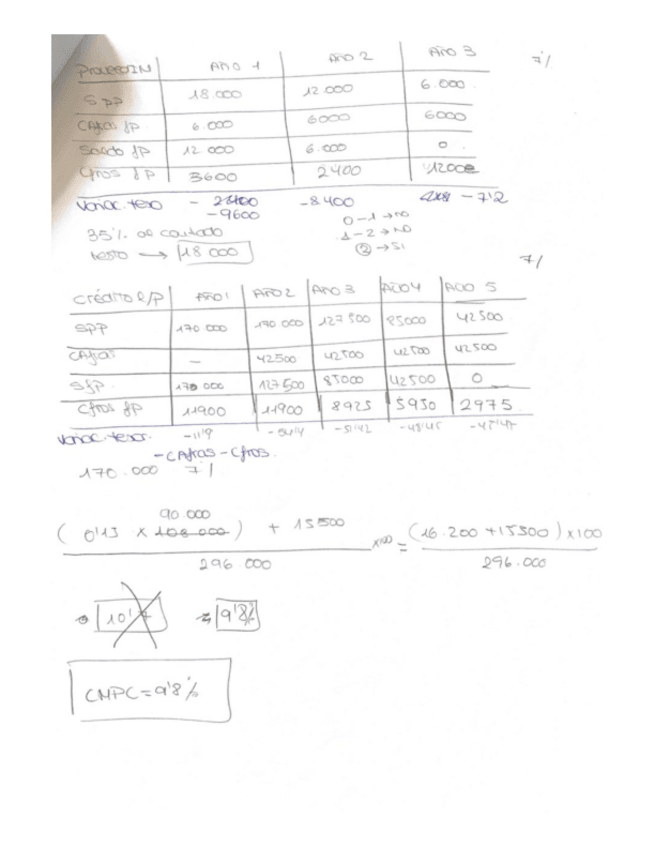 AÑO 1 AÑO 2 AÑO 3 7%
SPP 18.000 12.000 6.000
6.000 6000 6000
Saldo fP 12 000 6.000 0
Cfros fP 3600 2400 1200
Variac. teso -9600 -8400 -7'2
0-1 → no
35% al contado 1-2 → NO
resto → 18 000 ② → SI
7%
Crédito l/p AÑO 1 AÑO 2 AÑO 3 AÑO 4 AÑO 5
SPP 170 000 170 000 127 500 85000 42 500
— 42500 42500 42500 42500
SfP. 170 000 127500 85000 42500 0
Cfros fP 11900 11900 8925 5950 2975
Variac. tesor. -11'9 -54'4 -51'42 -48'45 -45'47
-Cfros.
170.000 7%
90.000
( 0'13 × 108.000 ) + 15500 ×100 = (16.200 +15500) ×100
296.000 296.000
10'7 9'8%
CMPC = 9'8%